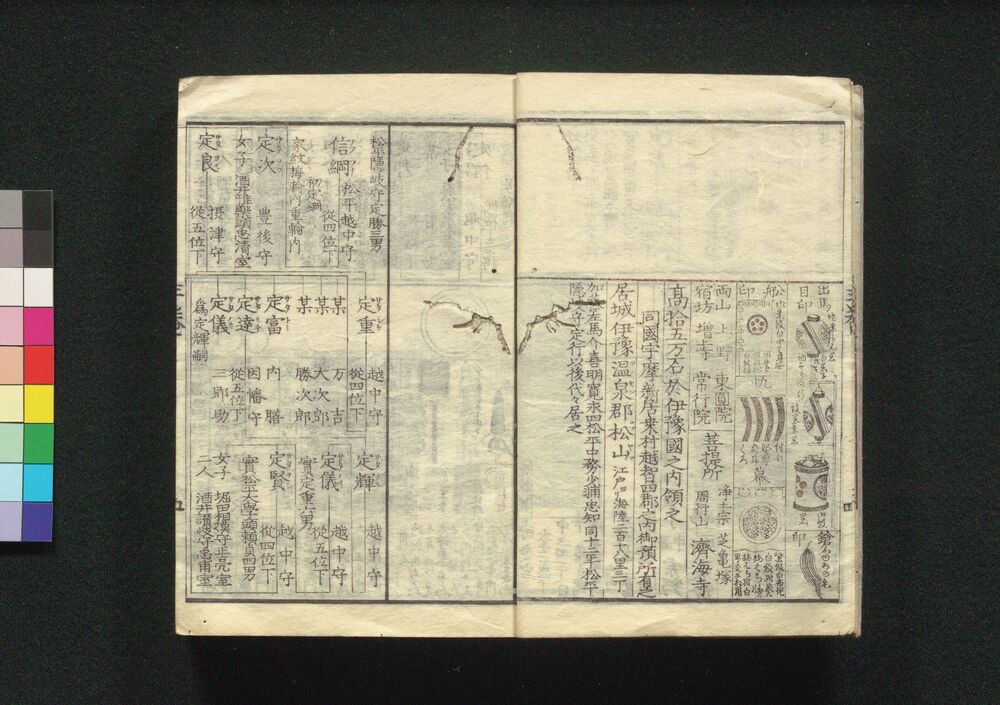 出馬印
目印
船印
幕
鎗
印
両山 上野 東圓院
宿坊 増寺 常行院
菩提所
浄土宗 芝亀塚
周行山 濟海寺
高拾五万石於伊豫國之内領之
同國宇摩新居桒村越智四郡之内御預所有之
居城伊豫温泉郡松山 江戸ヨリ海陸二百十八里三丁
加藤左馬介喜明寛永四松平中務少輔忠知同十二年松平
隠岐守定行以後代々居之
松平隠岐守定勝三男
信綱 松平越中守
従四位下
初定綱
家紋梅輪内重輪内
定次 豊後守
女子 酒井雅樂頭忠清室
定良 摂津守
従五位下
定重 越中守
従四位下
某 万吉
某 大次郎
某 勝次郎
定富 内膳
定逵 因幡守
従五位下
定儀 三郎助
為定輝嗣
定輝 越中守
定儀 越中守
従五位下
實定重六男
定賢 越中守
従四位下
實松平大學頭頼貞四男
女子 堀田相模守正亮室
二人 酒井讃岐守忠用室